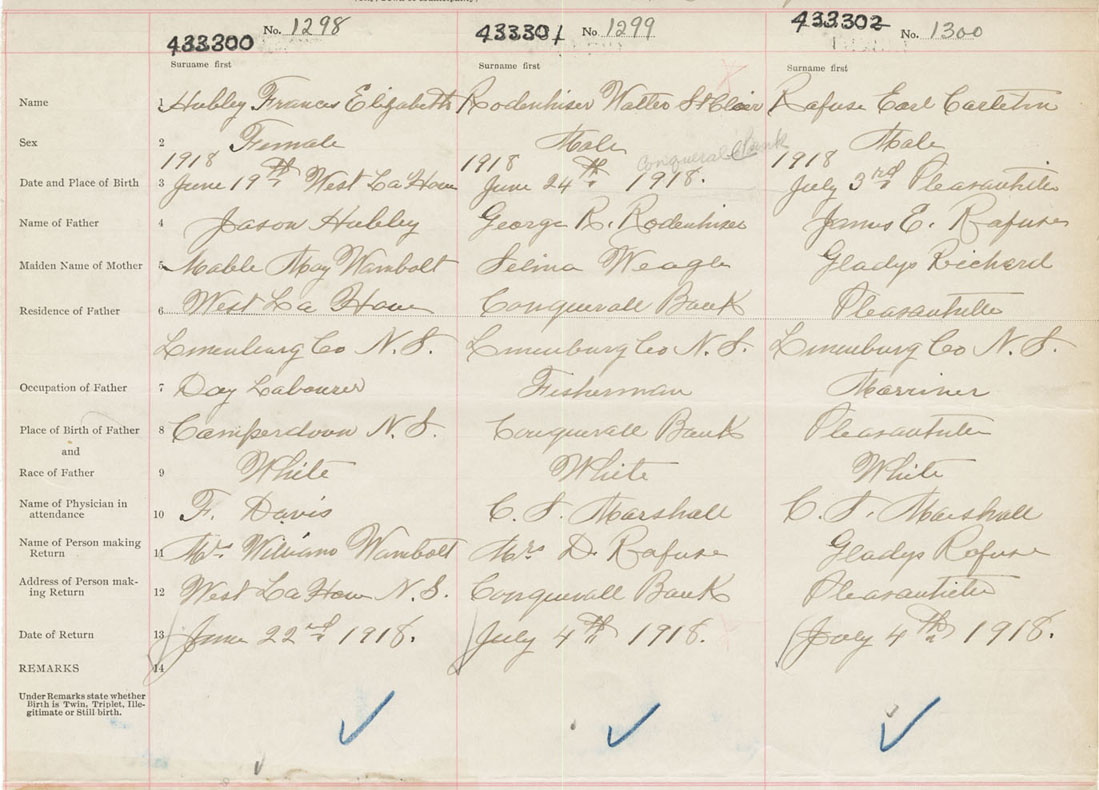 No. 1298 No 1299 No. 1300
433300 433301 433302
Surname first Surname first Surname first
Name 1 Hubley Francis Elizabeth Rodenhiser Walter St Clair Rafuse Earl Carleton
Sex 2 Female Male Male
1918 1918 Conquerall Bank 1918
Date and Place of Birth 3 June 19th West La Have June 24th 1918. July 3rd Pleasantville
Name of Father 4 Jason Hubley George R. Rodenhiser James E. Rafuse
Maiden Name of Mother 5 Mable May Wambolt Selina Weagle Gladys Richard
Residence of Father 6 West La Have Conquerall Bank Pleasantville
Lunenburg Co N.S. Lunenburg Co N.S. Lunenburg Co N.S.
Occupation of Father 7 Day Labourer Fisherman Marriner
Place of Birth of Father 8 Camperdown N.S. Conquerall Bank Pleasantville
and
Race of Father 9 White White White
Name of Physician in
attendance 10 F. Davis C. S. Marshall C. S. Marshall
Name of Person making
Return 11 Mrs Wambolt Mrs D. Rafuse Gladys Rafuse
Address of Person mak-
ing Return 12 West La Have N.S. Conquerall Bank Pleasantville
Date of Return 13 June 22nd 1918. July 4th 1918. July 4th 1918.
REMARKS 14
Under Remarks state whether
Birth is Twin, Triplet, Ille-
gitimate or Still birth.